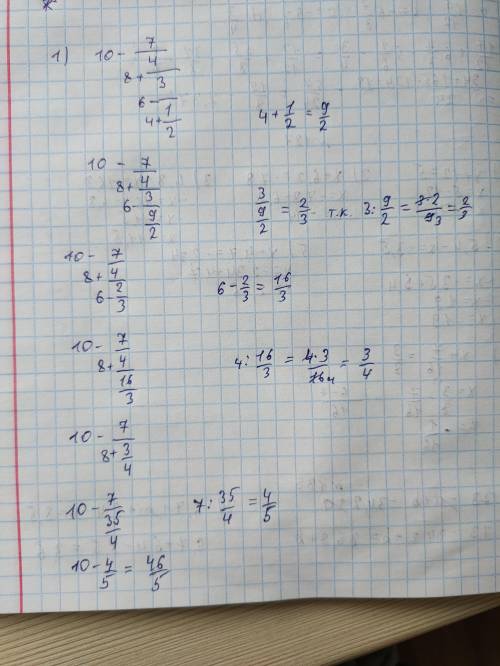 1) 10 - 7/(8 + 4/(6 - 3/(4 + 1/2)))
4 + 1/2 = 9/2
10 - 7/(8 + 4/(6 - 3/(9/2)))
3/(9/2) = 2/3 т.к. 3 : 9/2 = 3·2/9 3 = 2/3
10 - 7/(8 + 4/(6 - 2/3))
6 - 2/3 = 16/3
10 - 7/(8 + 4/(16/3))
4 : 16/3 = 4·3/16 4 = 3/4
10 - 7/(8 + 3/4)
10 - 7/(35/4)
7 : 35/4 = 4/5
10 - 4/5 = 46/5